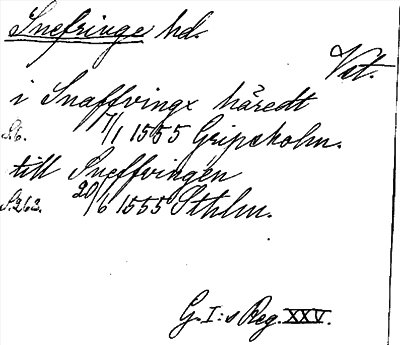 Snefringe hd.
Vst.
i Snaffvingx häredt
S. 6. 7/1 1555 Gripsholm.
till Sneffvingen
S. 262. 20/6 1555 Sthlm.
G. I:s Reg. XXV.